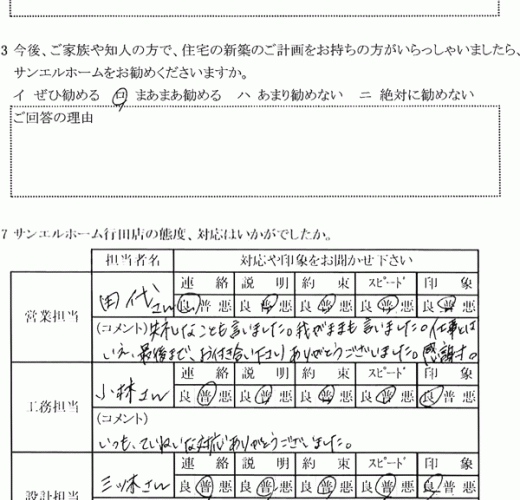 3 今後、ご家族や知人の方で、住宅の新築のご計画をお持ちの方がいらっしゃいましたら、
サンエルホームをお勧めくださいますか。
イ ぜひ勧める ロ まあまあ勧める ハ あまり勧めない ニ 絶対に勧めない
ご回答の理由
7 サンエルホーム行田店の態度、対応はいかがでしたか。
担当者名 対応や印象をお聞かせ下さい
連絡 説明 約束 スピード 印象
営業担当 田代さん 良普悪 良普悪 良普悪 良普悪 良普悪
(コメント)失礼なことも言いました。我がままも言いました。仕事とは
いえ、最後まで、お付き合いただき ありがとうございました。感謝す。
連絡 説明 約束 スピード 印象
工務担当 小林さん 良普悪 良普悪 良普悪 良普悪 良普悪
(コメント)
いつも、ていねいな対応ありがとうございました。
連絡 説明 約束 スピード 印象
設計担当 三ツ木さん 良普悪 良普悪 良普悪 良普悪 良普悪